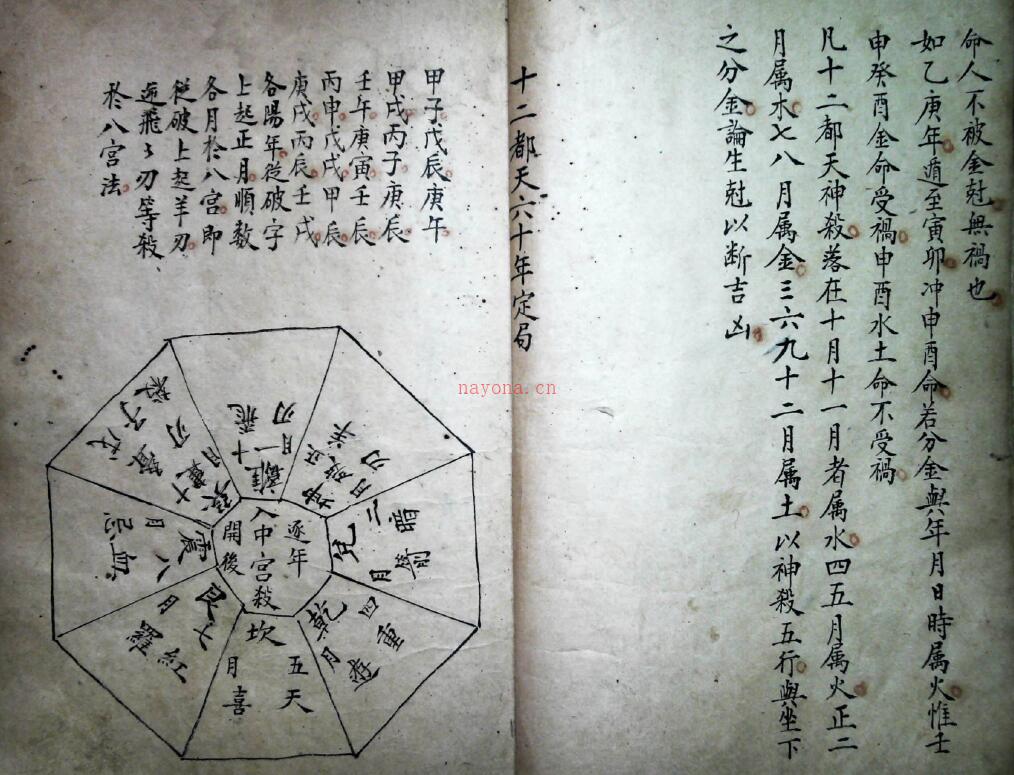 命人不被金尅無禍也
如乙庚年遁至寅卯冲申酉命若分金與年月日時属火惟壬
申癸酉金命受禍申酉水土命不受禍
凡十二都天神殺落在十月十一月者属水四五月属火正二
月属木七八月属金三六九十二月属土以神殺五行與坐下
之分金論生尅以断吉凶
十二都天六十年定局
甲子戊辰庚午
甲戌丙子庚辰
壬午庚寅壬辰
丙申戊戌甲辰
庚戌丙辰壬戌
各陽年從破字
上起正月順数
各月於八宮即
從破上起羊刃
逆飛〻刃等殺
於八宮法
逐年
入中宮殺
開後
離
十一月
飛刃
坤
正月
破
羊刃
兌
二月
暗箭
乾
四月
重遊
坎
五月
天喜
艮
七月
紅羅
震
八月
血忌
巽
十月
刃
nayona.cn